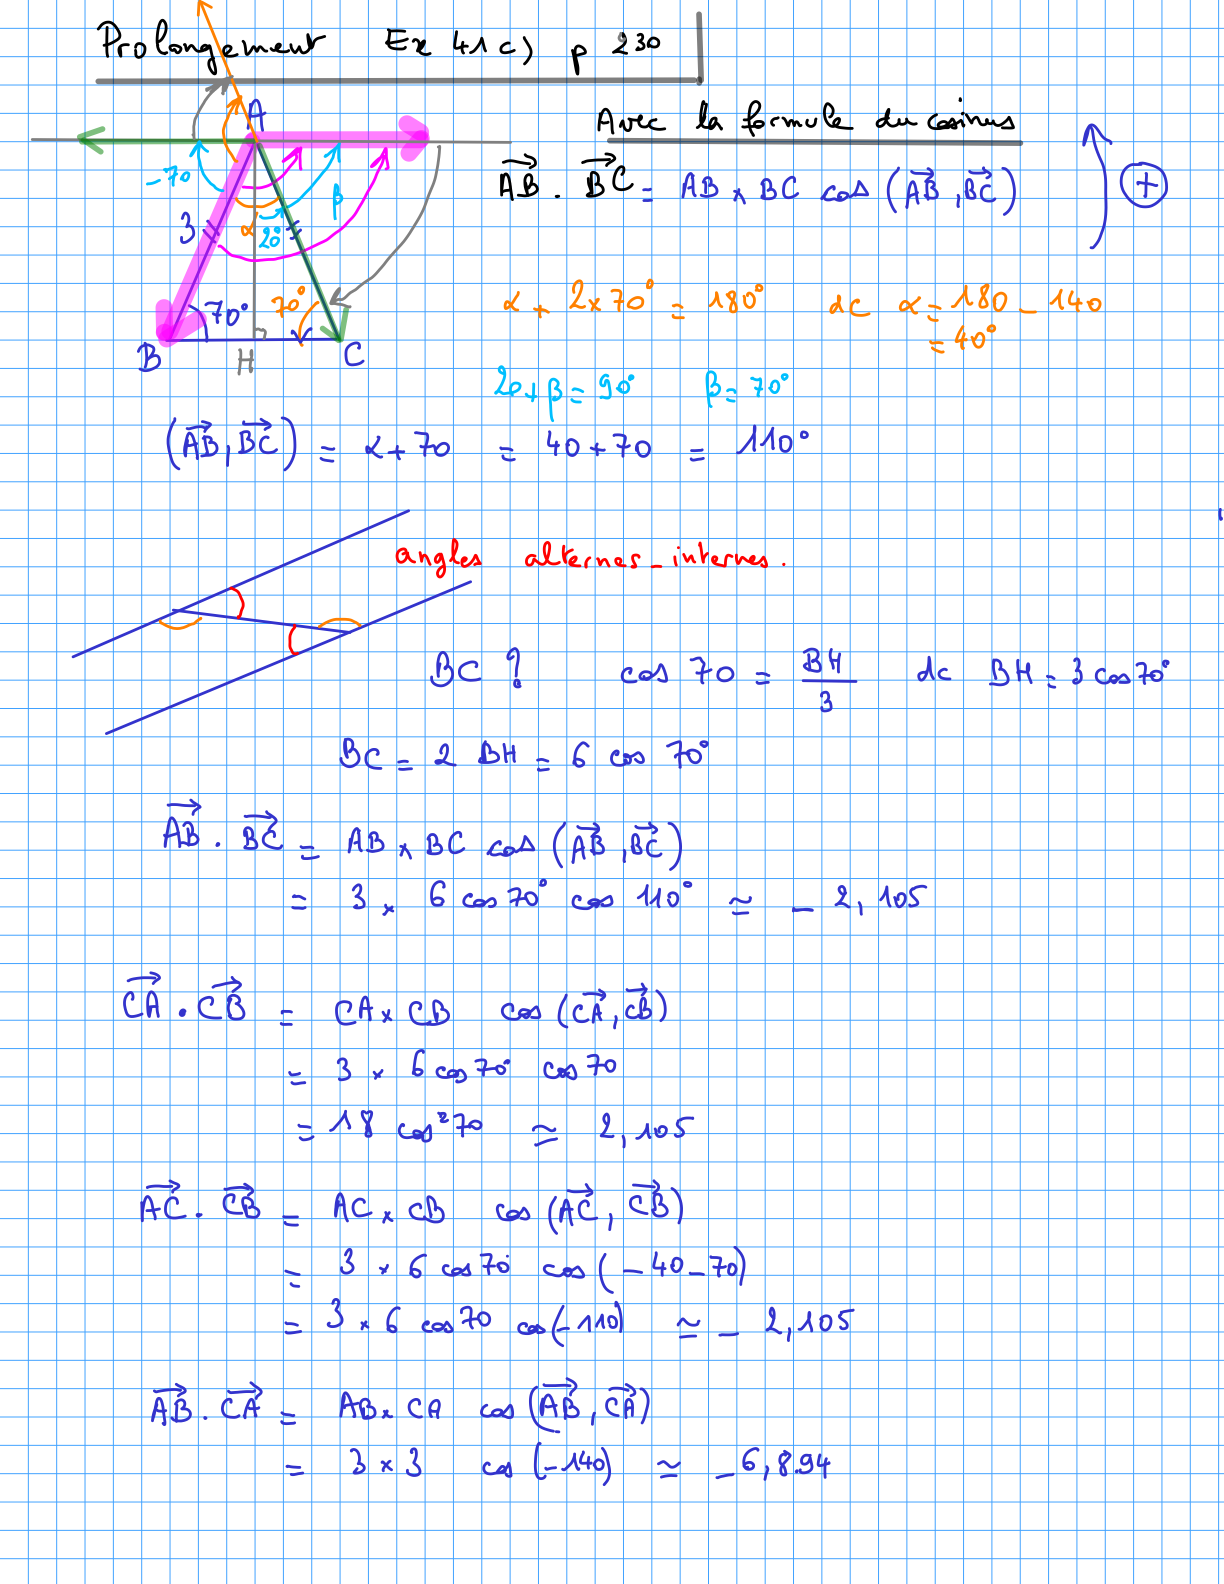 Prolongement Ex 41 c) p 230
Avec la formule du cosinus
AB . BC = AB × BC cos (AB, BC) +
A
-70
β
3
α
20°
70° 70°
B H C
α + 2×70° = 180° dc α = 180 - 140
= 40°
20 + β = 90° β = 70°
(AB, BC) = α + 70 = 40 + 70 = 110°
angles alternes-internes.
BC ? cos 70 = BH/3 dc BH = 3 cos 70°
BC = 2 BH = 6 cos 70°
AB . BC = AB × BC cos (AB, BC)
= 3 × 6 cos 70° cos 110° ≃ - 2,105
CA . CB = CA × CB cos (CA, CB)
= 3 × 6 cos 70° cos 70
= 18 cos² 70 ≃ 2,105
AC . CB = AC × CB cos (AC, CB)
= 3 × 6 cos 70 cos (-40-70)
= 3 × 6 cos 70 cos (-110) ≃ - 2,105
AB . CA = AB × CA cos (AB, CA)
= 3 × 3 cos (-140) ≃ -6,894